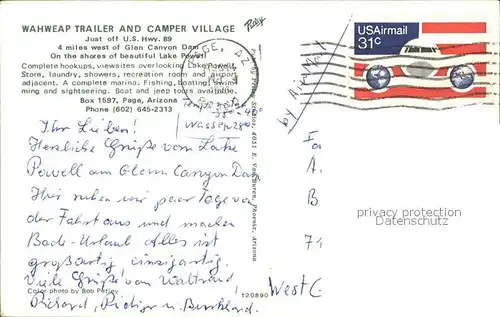 WAHWEAP TRAILER AND CAMPER VILLAGE
Just off U.S. Hwy. 89
4 miles west of Glen Canyon Dam
On the shores of beautiful Lake Powell
Complete hookups, viewsites overlooking Lake Powell.
Store, laundry, showers, recreation room and airport
adjacent. A complete marina. Fishing, boating, swim-
ming and sightseeing. Boat and jeep tours available.
Box 1597, Page, Arizona
Phone (602) 645-2313
Petley
PAGE, AZ
USAirmail
31c
by Air Mail
Wasser 28°
Ihr Lieben!
Herzliche Grüße vom Lake
Powell am Glenn Canyon Dam
Hier ruhen wir paar Tage von
der Fahrt aus und machen
Bade-Urlaub Alles ist
großartig, einzigartig.
Viele Grüße von Waltraud,
Richard, Rüdiger u. Burkhard.
Color photo by Bob Petley
4051 E. Van Buren, Phoenix, Arizona
120890
A
B
West
privacy protection
Datenschutz